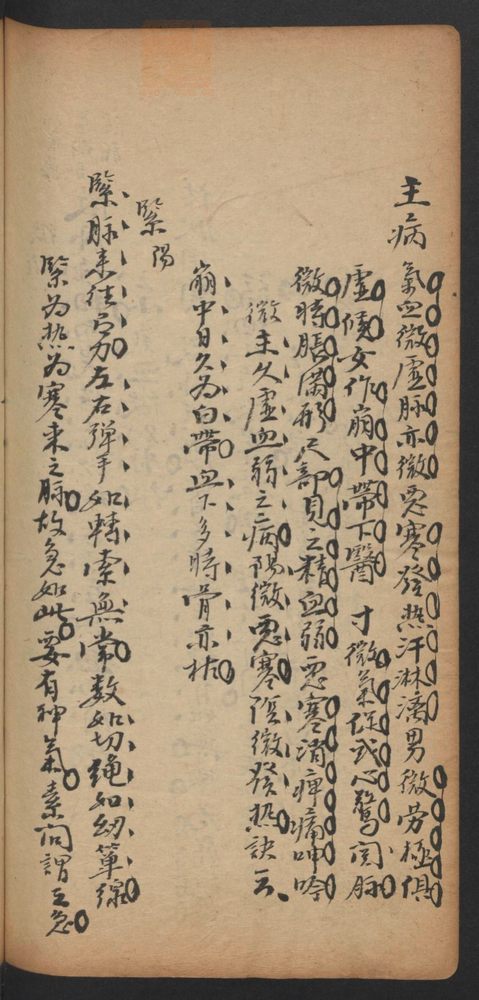 主病 氣血微虛脉亦微惡寒發热汗淋漓男微勞極俱
虛候女作崩中帶下醫 寸微氣促或心驚関脉
微時脹滿形尺部見之精血弱惡寒消痺痛呻吟
微主久虛血弱之病陽微惡寒陰微發热訣云
崩中日久為白帶血下多時骨亦枯
緊陽
緊脉來往有力左右彈手如轉索無常數如切绳如纫箄線
緊为热为寒束之脉故急如此要有神氣素问謂之急